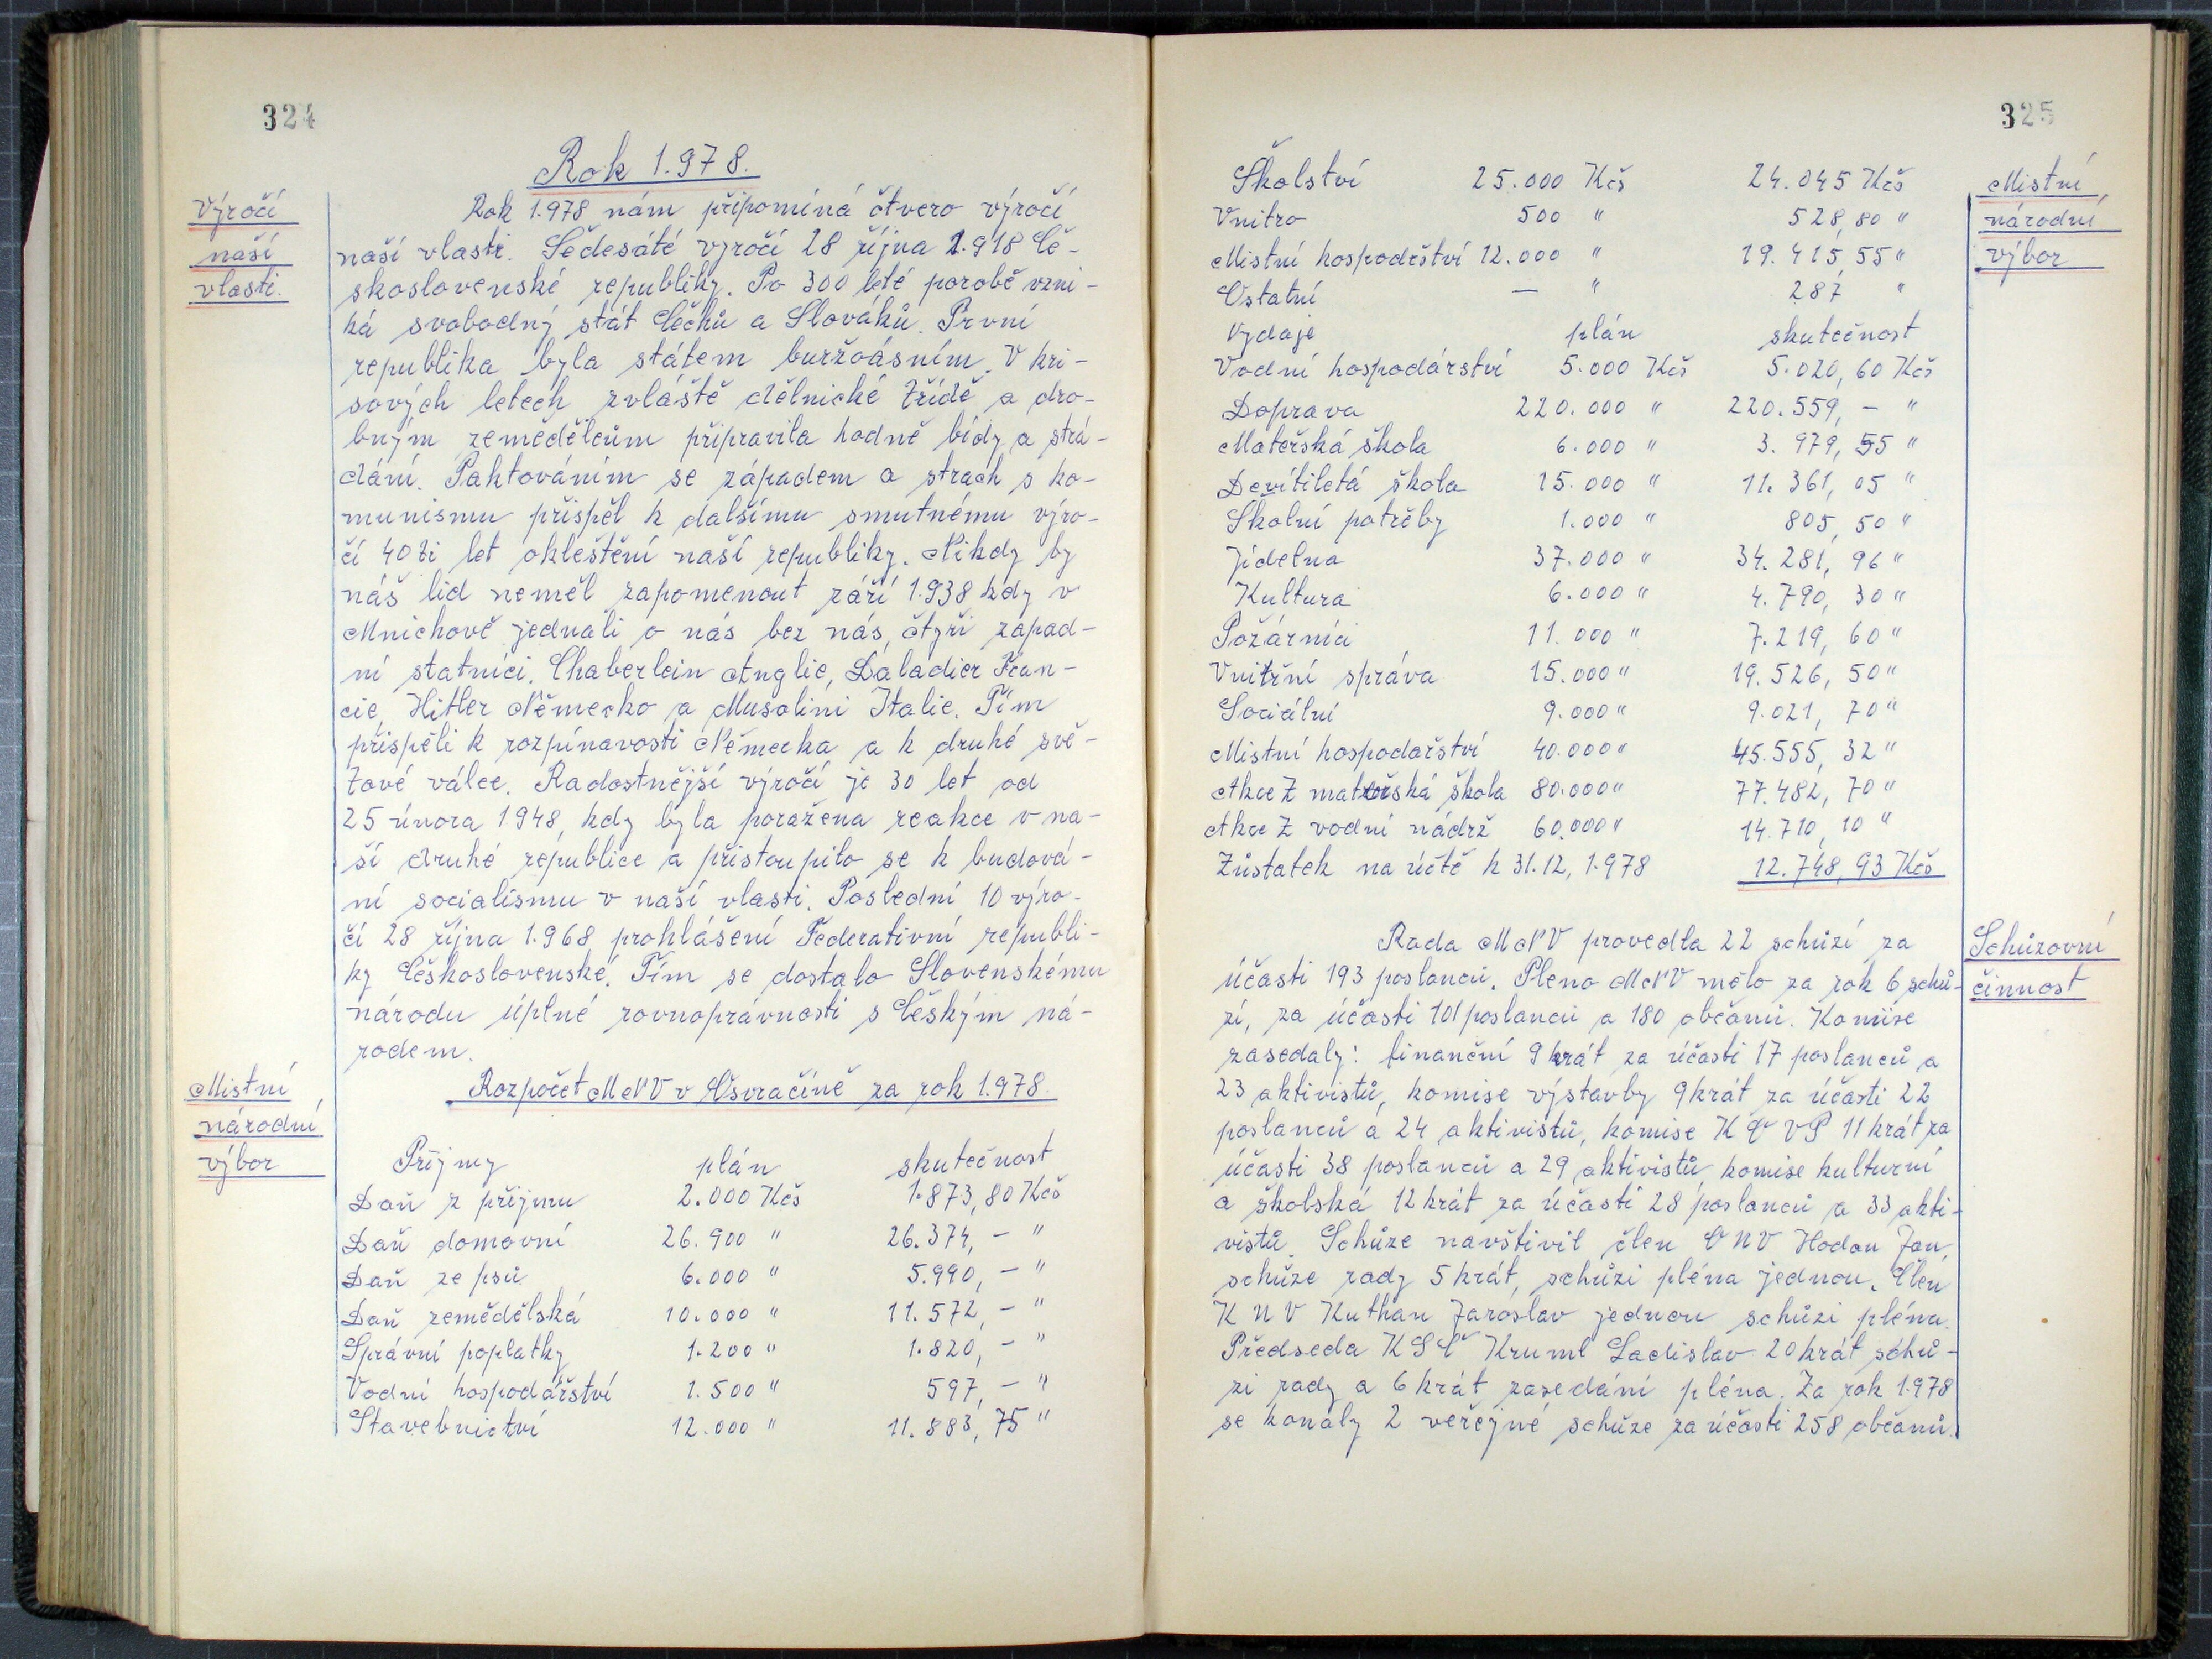 324
Rok 1.978.
Výročí
naší
vlasti.
Rok 1.978 nám připomíná čtvero výročí
naší vlasti. Šedesáté výročí 28 října 1.918 Če-
skoslovenské republiky. Po 300 leté porobě vzni-
ká svobodný stát Čechů a Slováků. První
republika byla státem buržoásním. V kri-
sových letech zvláště dělnické třídě a dro-
bným zemědělcům připravila hodně bídy a strá-
dání. Paktováním se západem a strach s ko-
munismu přispěl k dalšímu smutnému výro-
čí 40ti let okleštění naší republiky. Nikdy by
náš lid neměl zapomenout září 1.938 kdy v
Mnichově jednali o nás bez nás, čtyři západ-
ní statníci. Chaberlein Anglie, Daladier Fran-
cie, Hitler Německo a Musolini Italie. Tím
přispěli k rozpínavosti Německa a k druhé svě-
tové válce. Radostnější výročí je 30 let od
25 února 1948, kdy byla poražena reakce v na-
ší druhé republice a přistoupilo se k budová-
ní socialismu v naší vlasti. Poslední 10 výro-
čí 28 října 1.968 prohlášení Federativní republi-
ky Československé. Tím se dostalo Slovenskému
národu úplné rovnoprávnosti s Českým ná-
rodem.
Místní
národní
výbor
Rozpočet MNV v Osvračíně za rok 1.978.
Příjmy plán skutečnost
Daň z příjmu 2.000 Kčs 1.873,80 Kčs
Daň domovní 26.900 " 26.374,- "
Daň ze psů 6.000 " 5.990,- "
Daň zemědělská 10.000 " 11.572,- "
Správní poplatky 1.200 " 1.820,- "
Vodní hospodářství 1.500 " 597,- "
Stavebnictví 12.000 " 11.883,75 "
325
Místní
národní
výbor
Školství 25.000 Kčs 24.045 Kčs
Vnitro 500 " 528,80 "
Místní hospodrství 12.000 " 19.415,55 "
Ostatní — " 287 "
Vydaje plán skutečnost
Vodní hospodárství 5.000 Kčs 5.020,60 Kčs
Doprava 220.000 " 220.559,- "
Mateřská škola 6.000 " 3.979,55 "
Devítiletá škola 15.000 " 11.361,05 "
Školní potřeby 1.000 " 805,50 "
Jídelna 37.000 " 34.281,96 "
Kultura 6.000 " 4.790,30 "
Požárníci 11.000 " 7.219,60 "
Vnitřní správa 15.000 " 19.526,50 "
Sociální 9.000 " 9.021,70 "
Místní hospodařství 40.000 " 45.555,32 "
Akce Z mateřská škola 80.000 " 77.482,70 "
Akce Z vodní nádrž 60.000 " 14.710,10 "
Zůstatek na účtě k 31.12, 1.978 12.748,93 Kčs
Schůzovní
činnost
Rada MNV provedla 22 schůzí za
účasti 193 poslanců. Pleno MNV mělo za rok 6 schů-
zí, za účasti 101 poslanců a 180 občanů. Komise
zasedaly: finanční 9 krát za účasti 17 poslanců a
23 aktivistů, komise výstavby 9 krát za účasti 22
poslanců a 24 aktivistů, komise K O VP 11 krát za
účasti 38 poslanců a 29 aktivistů komise kulturní
a školská 12 krát za účasti 28 poslanců a 33 akti-
vistů. Schůze navštívil člen ONV Hodan Jan,
schůze rady 5 krát, schůzi pléna jednou. Člen
KNV Kuthan Jaroslav jednou schůzi pléna.
Předseda KSČ Kruml Ladislav 20 krát schů-
zi rady a 6 krát zasedání pléna. Za rok 1.978
se konaly 2 veřejné schůze za účasti 258 občanů.